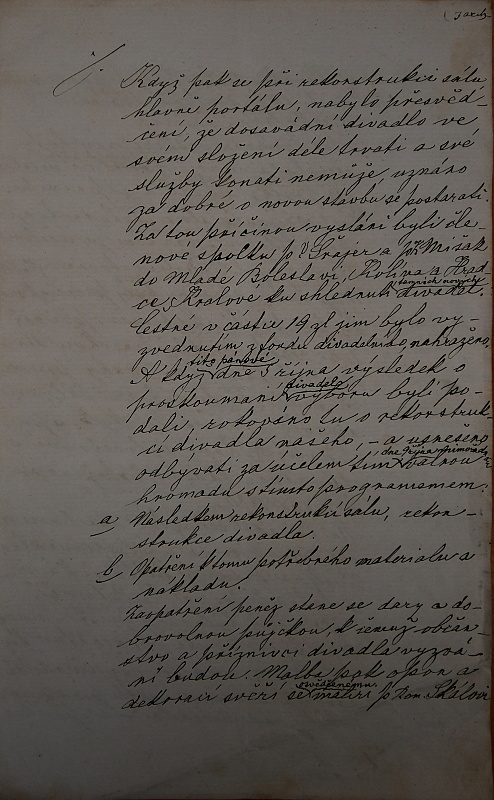 Když pak se při rekonstrukci sálu
hlavně portálu, nabylo přesvěd-
čení, že dosavádní divadlo ve
svém složení déle trvati a své
služby konati nemůže, uznáno
za dobré o novou stavbu se postarati.
Za tou příčinou vysláni byli čle-
nové spolku p. Šrajer a p. Mišák
do Mladé Boleslavi, Kolína a Hrad-
tamních nových
ce Králové ku shlednutí divadel.
Cestné v částce 19 zl jim bylo vy-
zvednutím z fondu divadelního, nahraženo.
tito pánové
A když dne 5 října výsledek o
divadelo
proskoumání výboru byli po-
dali, rokováno tu o rekonstruk-
ci divadla našeho, - a usneseno
dne října mimořádn
odbývati za účelem tím valnou
hromadu s tímto programmem:
a Následkem rekonstrukcí sálu, rekon-
strukce divadla.
b Opatření k tomu potřebného materialu a
nákladu.
Zaopatření peněz stane se dary a do-
brovolnou půjčkou, k čemuž občan-
stvo a příznivci divadla vyzvá-
ni budou. Malba pak opon a
osvědčenému
dekorací svěří se malíři p. Rom. Skálovi